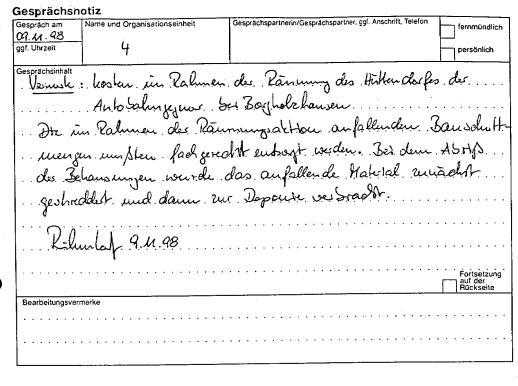 Gesprächsnotiz
Gespräch am
09.11.98
ggf. Uhrzeit
Name und Organisationseinheit
4
Gesprächspartnerin/Gesprächspartner, ggf. Anschrift, Telefon
fernmündlich
persönlich
Gesprächsinhalt
Vermerk: Kosten im Rahmen der Räumung des Hüttendorfes der
Autobahngegner bei Borgholzhausen
Die im Rahmen der Räumungsaktion anfallenden Bauschutt-
mengen mußten fachgerecht entsorgt werden. Bei dem Abriß
der Behausungen wurde das anfallende Material zunächst
geschreddet und dann zur Deponie verbracht.
9.11.98
Fortsetzung
auf der
Rückseite
Bearbeitungsvermerke